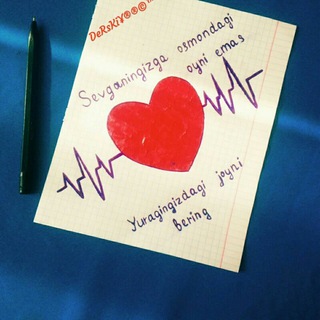 DeRsKiY®®©
Sevganingizga osmondagi
oyni emas
Yuragingizdagi joyni
bering